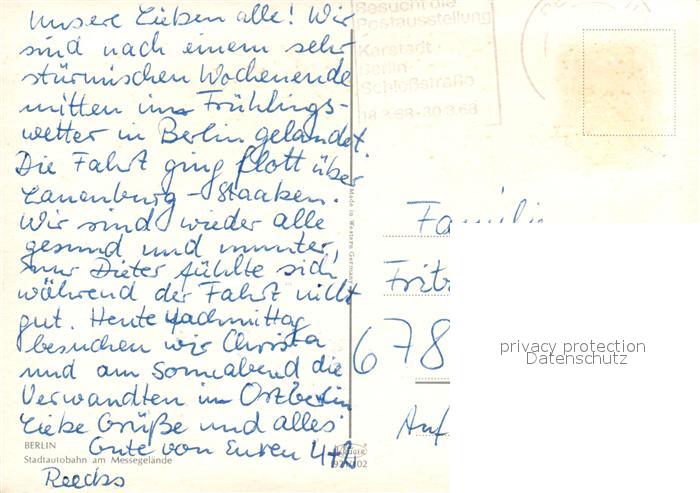 Unsere Lieben alle! Wir
sind nach einem sehr
stürmischen Wochenende
mitten im Frühlings-
wetter in Berlin gelandet.
Die Fahrt ging flott über
Lauenburg - Staaken.
Wir sind wieder alle
gesund und munter,
nur Dieter fühlte sich
während der Fahrt nicht
gut. Heute Nachmittag
besuchen wir Christa
und am Sonnabend die
Verwandten in Ostberlin
Liebe Grüße und alles
Gute von Euren
BERLIN
Stadtautobahn am Messegelände
Made in Western Germany
Besucht die
Postausstellung
Karstadt
Berlin
Schloßstraße
18.3.68-30.3.68
Familie
Fritz
678
privacy protection
Datenschutz